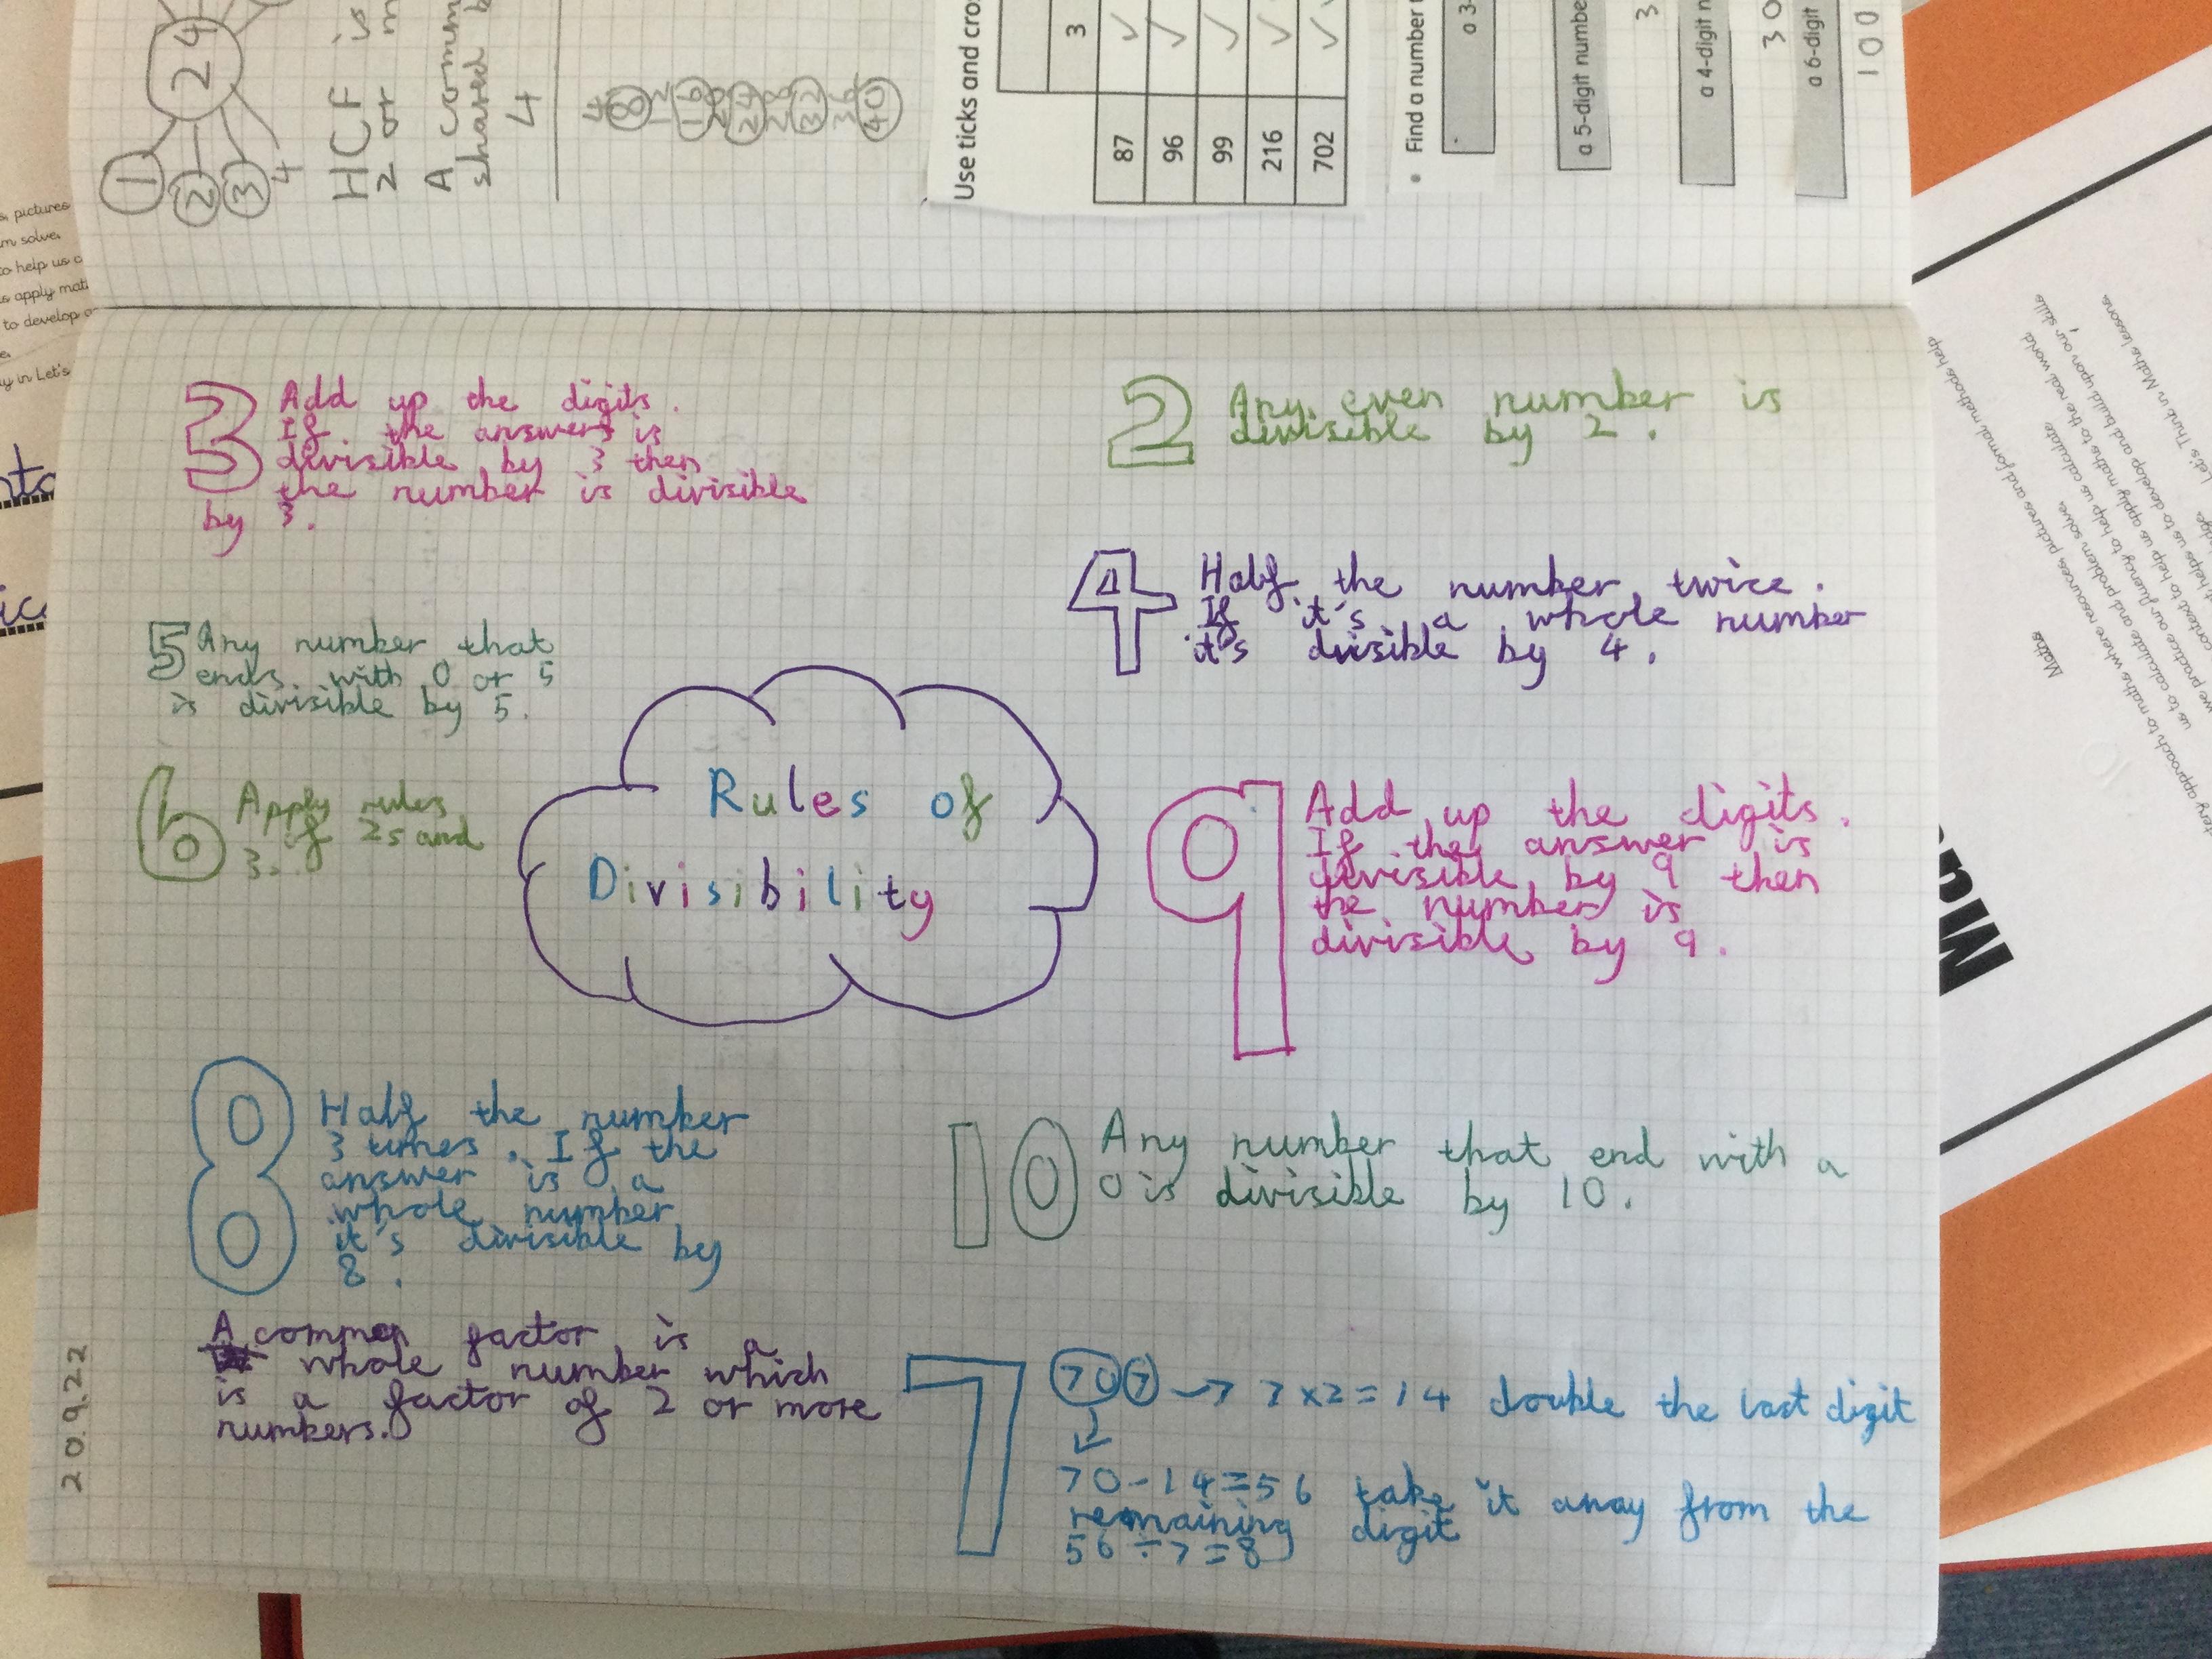 24
1
2
3
4
HCF is
2 or m
A comm
shared b
4
4
8
12
16
20
24
28
32
36
40
Use ticks and cro
3
87 ✓
96 ✓
99 ✓
216 ✓
702 ✓
• Find a number
a 3-
a 5-digit numbe
3
a 4-digit n
30
a 6-digit
100
s, pictures
m solve.
to help us c
us apply mat
to develop
y in Let's
3 Add up the digits.
If the answers is
divisible by 3 then
the number is divisible
by 3.
2 Any even number is
divisible by 2.
4 Half the number twice.
If it's a whole number
it's divisible by 4.
5 Any number that
ends with 0 or 5
is divisible by 5.
6 Apply rules
of 2s and
3.
Rules of
Divisibility
9 Add up the digits.
If the answer is
divisible by 9 then
the number is
divisible by 9.
8 Half the number
3 times. If the
answer is a
whole number
it's divisible by
8.
10 Any number that end with a
0 is divisible by 10.
A common factor is a
whole number which
is a factor of 2 or more
numbers.
7 707 → 7x2=14 double the last digit
70-14=56 take it away from the
remaining digit
56÷7=8
20.9.22
Maths
Let's Think in Maths lessons